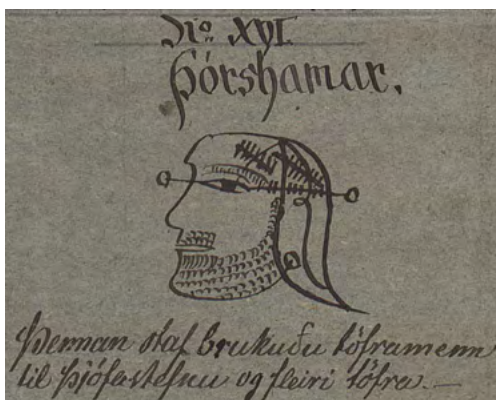 No XVI.
Þórshamar.
Þennan staf brukuðu töframenn
til þjófastefnu og fleiri töfra.—